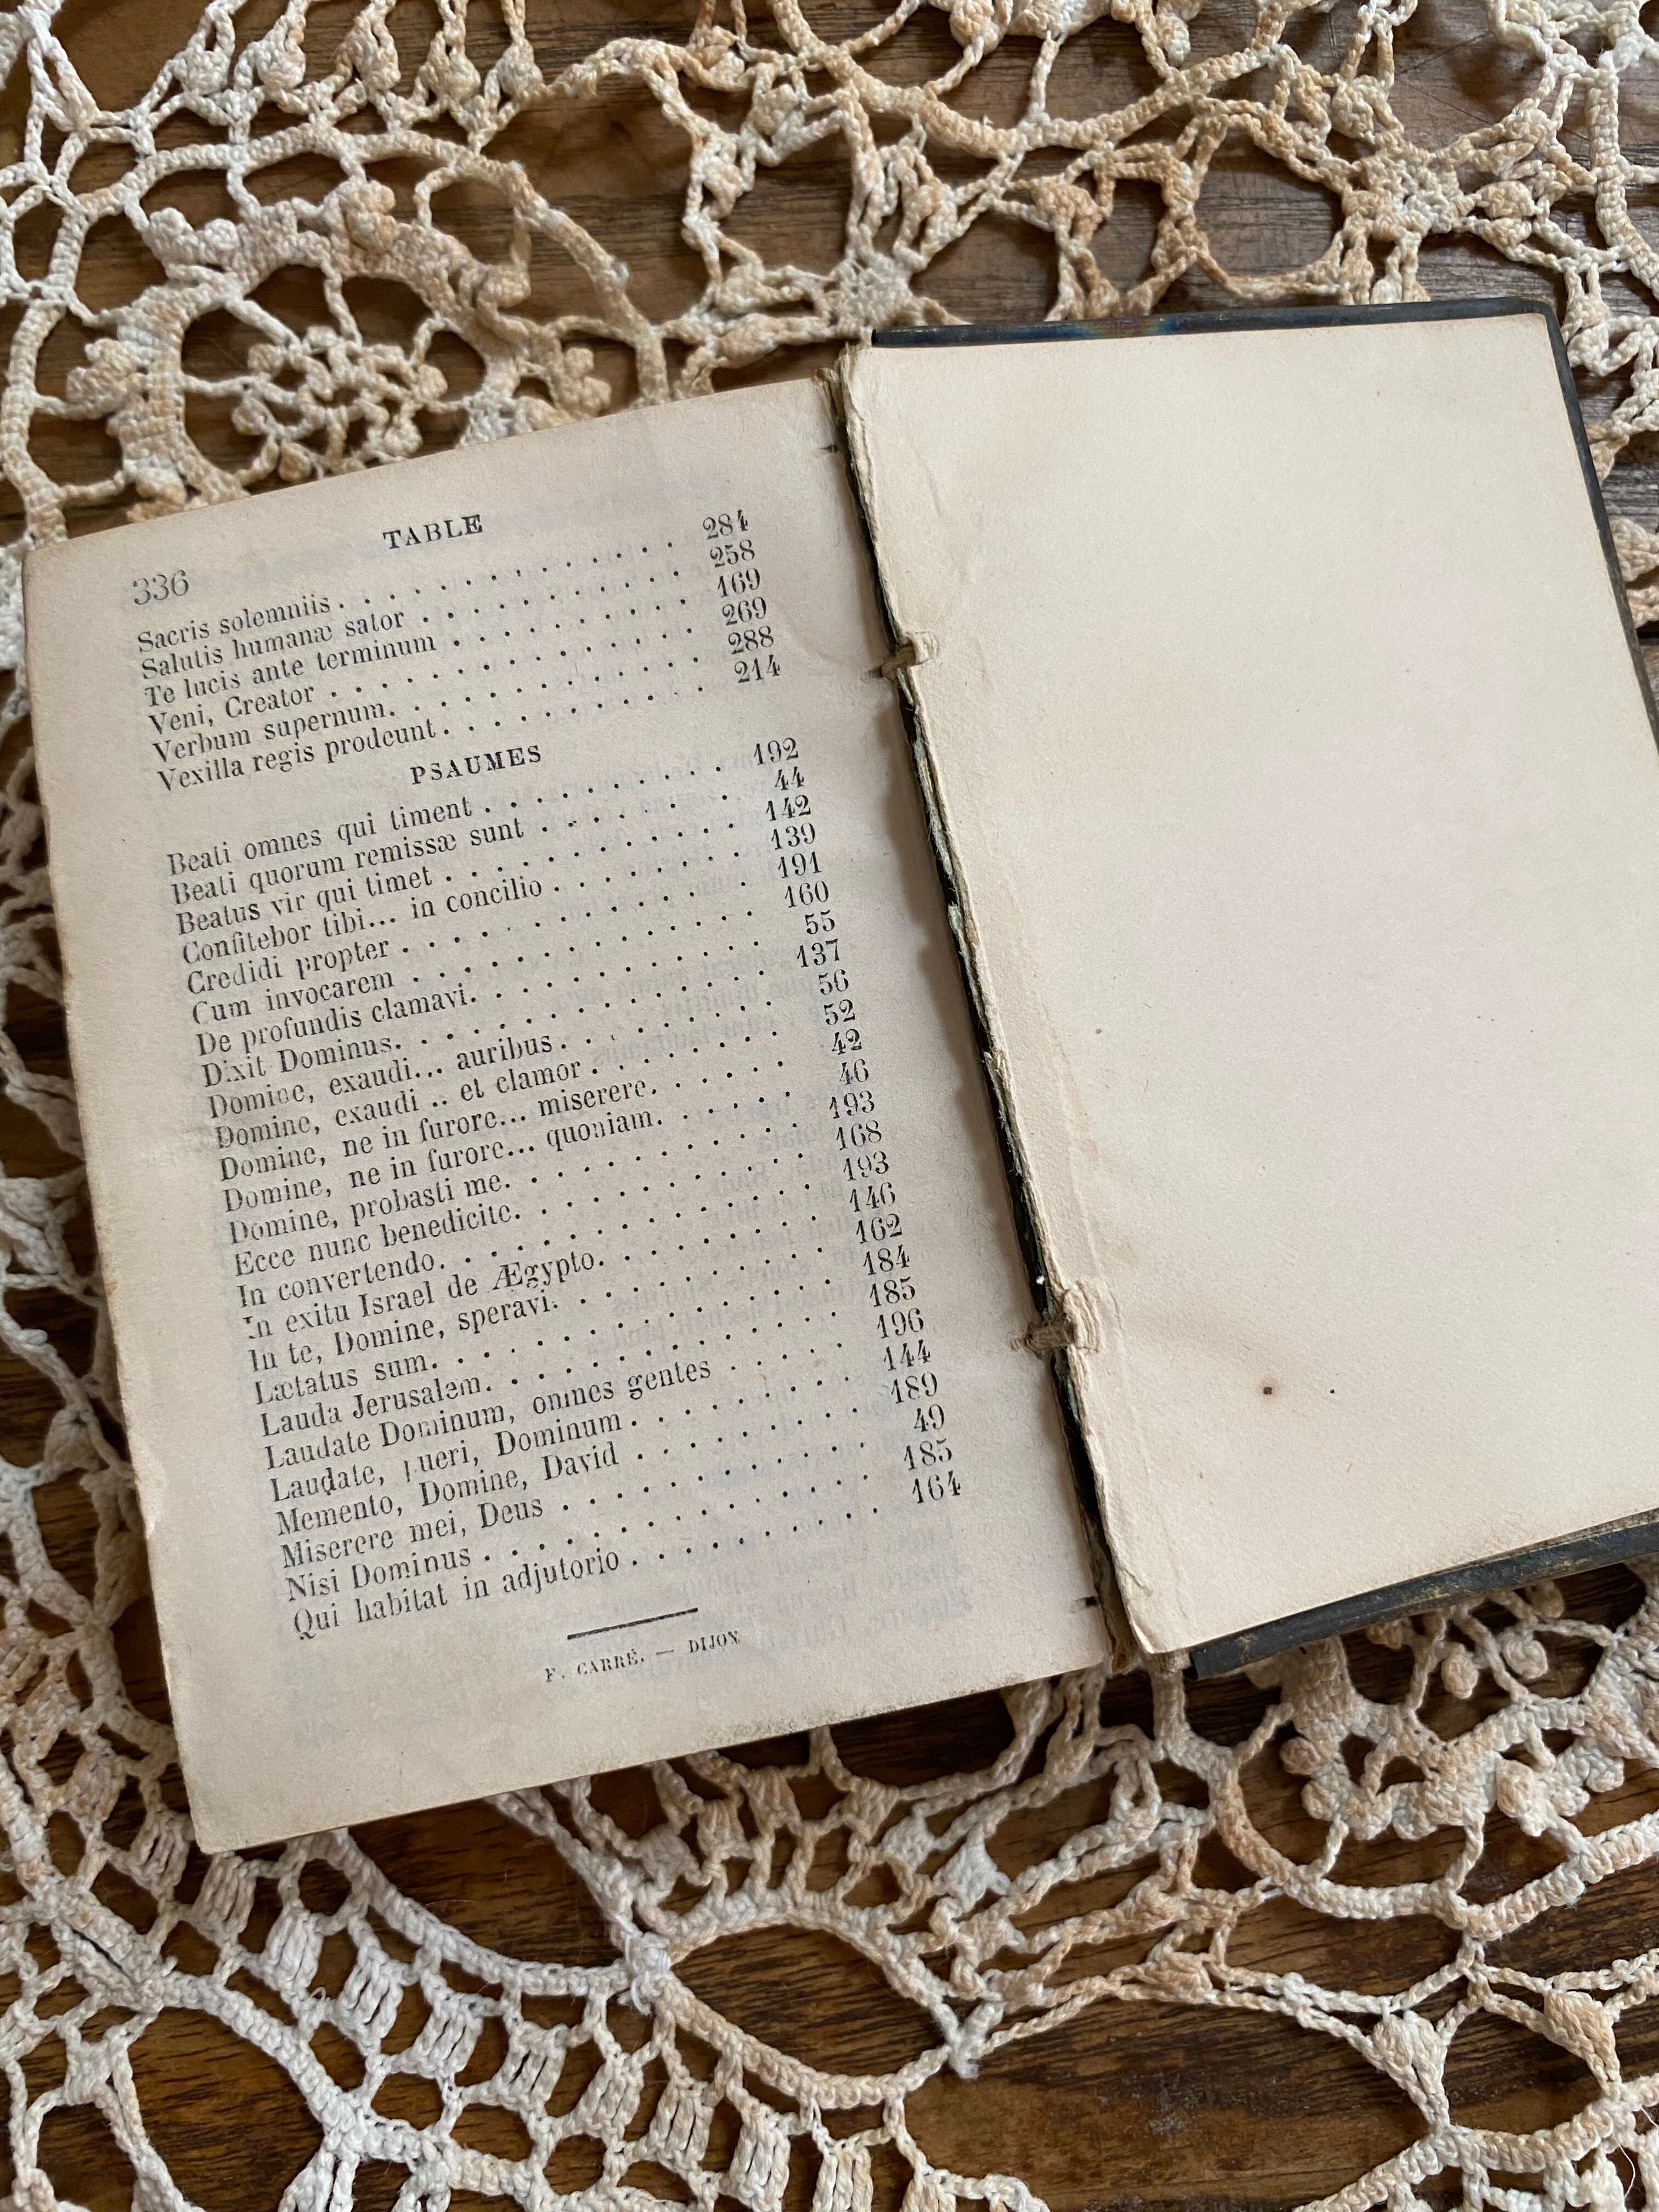 336
TABLE
Sacris solemniis . . . . . . . . . . . . . 284
Salutis humanæ sator . . . . . . . . . . . 258
Te lucis ante terminum . . . . . . . . . . 169
Veni, Creator . . . . . . . . . . . . . . 269
Verbum supernum. . . . . . . . . . . . . 288
Vexilla regis prodeunt. . . . . . . . . . . 214
PSAUMES
Beati omnes qui timent . . . . . . . . . . 192
Beati quorum remissæ sunt . . . . . . . . 44
Beatus vir qui timet . . . . . . . . . . . 142
Confitebor tibi... in concilio . . . . . . . . 139
Credidi propter . . . . . . . . . . . . . 191
Cum invocarem . . . . . . . . . . . . . 160
De profundis clamavi. . . . . . . . . . . 55
Dixit Dominus. . . . . . . . . . . . . . 137
Domine, exaudi... auribus . . . . . . . . 56
Domine, exaudi .. et clamor . . . . . . . 52
Domine, ne in furore... miserere. . . . . . 42
Domine, ne in furore... quoniam. . . . . . 46
Domine, probasti me. . . . . . . . . . . 193
Ecce nunc benedicite. . . . . . . . . . . 168
In convertendo. . . . . . . . . . . . . . 193
In exitu Israel de Ægypto. . . . . . . . . 146
In te, Domine, speravi. . . . . . . . . . 162
Lætatus sum. . . . . . . . . . . . . . . 184
Lauda Jerusalem. . . . . . . . . . . . . 185
Laudate Dominum, omnes gentes . . . . . 196
Laudate, pueri, Dominum . . . . . . . . 144
Memento, Domine, David . . . . . . . . 189
Miserere mei, Deus . . . . . . . . . . . 49
Nisi Dominus . . . . . . . . . . . . . . 185
Qui habitat in adjutorio . . . . . . . . . 164
F. CARRÉ. — DIJON